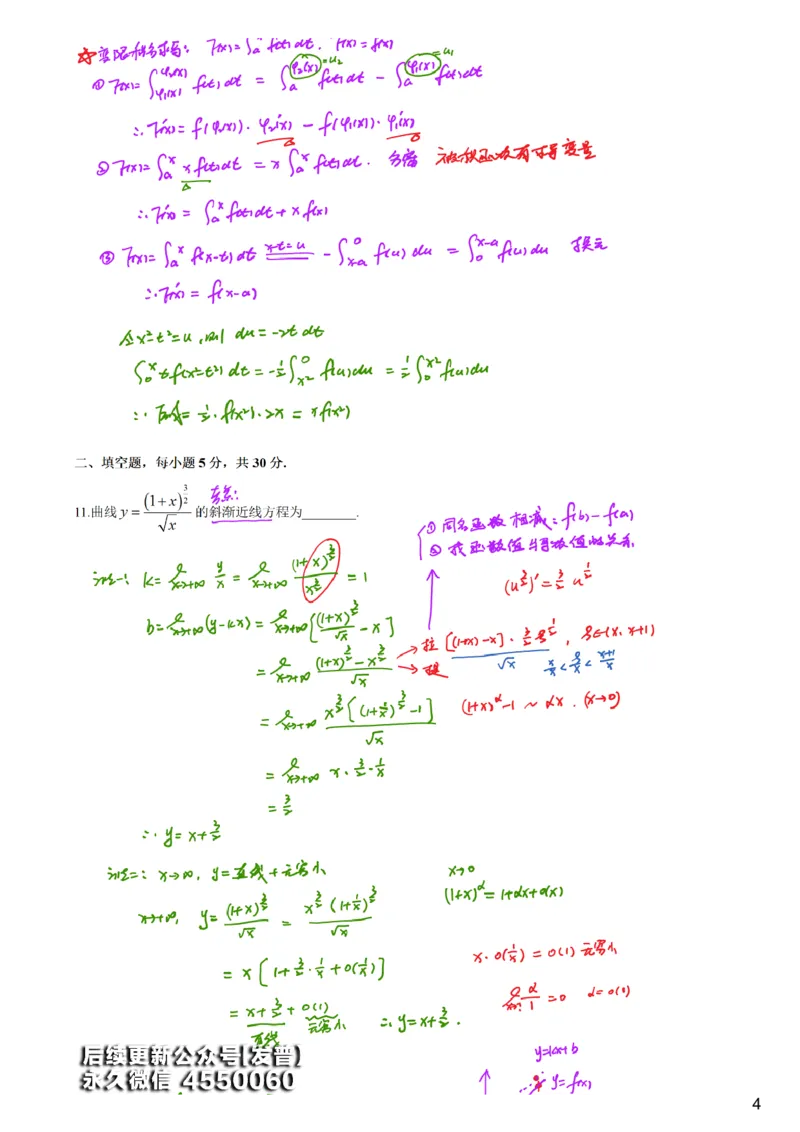 ☆变限积分求导: F(x)=∫ₐˣ f(t)dt, F'(x)=f(x)
① F(x)=∫_{φ₁(x)}^{φ₂(x)} f(t)dt = ∫ₐ^{φ₂(x)=u₂} f(t)dt − ∫ₐ^{φ₁(x)=u₁} f(t)dt
∴ F'(x)=f(φ₂(x))·φ₂'(x) − f(φ₁(x))·φ₁'(x)
② F(x)=∫ₐˣ xf(t)dt = x∫ₐˣ f(t)dt. 分离 被积函数有求导变量
∴ F'(x) = ∫ₐˣ f(t)dt + xf(x)
③ F(x)=∫ₐˣ f(x-t)dt x-t=u −∫_{x-a}^0 f(u)du = ∫₀^{x-a} f(u)du 换元
∴ F'(x) = f(x-a)
令x²-t²=u, 则 du=-2t dt
∫₀ˣ tf(x²-t²)dt = -½∫_{x²}^0 f(u)du = ½∫₀^{x²} f(u)du
∴ 原式= ½·f(x²)·2x = xf(x²)
二、填空题，每小题 5 分，共 30 分.
11.曲线 y = (1+x)^{3/2}/√x 的斜渐近线方程为________.
① 同名函数相减: f(b)-f(a)
② 找函数值与导数值的关系
法一: k= lim_{x→+∞} y/x = lim_{x→+∞} (1+x)^{3/2}/x^{3/2} = 1
(u^{3/2})' = 3/2 u^{1/2}
b= lim_{x→+∞}(y-kx) = lim_{x→+∞}[(1+x)^{3/2}/√x − x]
→拉 [(1+x)-x]·3/2 ξ^{1/2}/√x, ξ∈(x, x+1)
x/x < ξ/x < x+1/x
= lim_{x→+∞} (1+x)^{3/2} − x^{3/2}/√x →提
= lim_{x→+∞} x^{3/2}[(1+1/x)^{3/2} −1]/√x
(1+x)^α −1 ~ αx. (x→0)
= lim_{x→+∞} x·3/2·1/x
= 3/2
∴ y= x+3/2
法二: x→∞, y=直线+无穷小
x→0
(1+x)^α = 1+αx+o(x)
x→+∞, y= (1+x)^{3/2}/√x = x^{3/2}(1+1/x)^{3/2}/√x
= x[1+3/2·1/x+o(1/x)]
x·o(1/x) = o(1) 无穷小
= x+3/2+o(1)
直线 无穷小 ∴ y=x+3/2.
lim_{x→?} α/1 =0 α=o(1)
后续更新公众号[发普]
永久微信 4550060
y=kx+b
y=f(x)
4